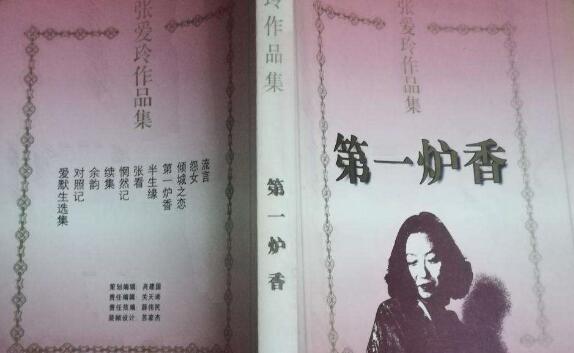 张爱玲作品集
流言
怨女
倾城之恋
第一炉香
半生缘
张看
惘然记
续集
余韵
对照记
爱默生选集
策划编辑 高建国
责任编辑 关天晞
责任技编 薛伟民
装帧设计 苏家杰
玲作品集
第一炉香
张爱玲作品集
第一炉香